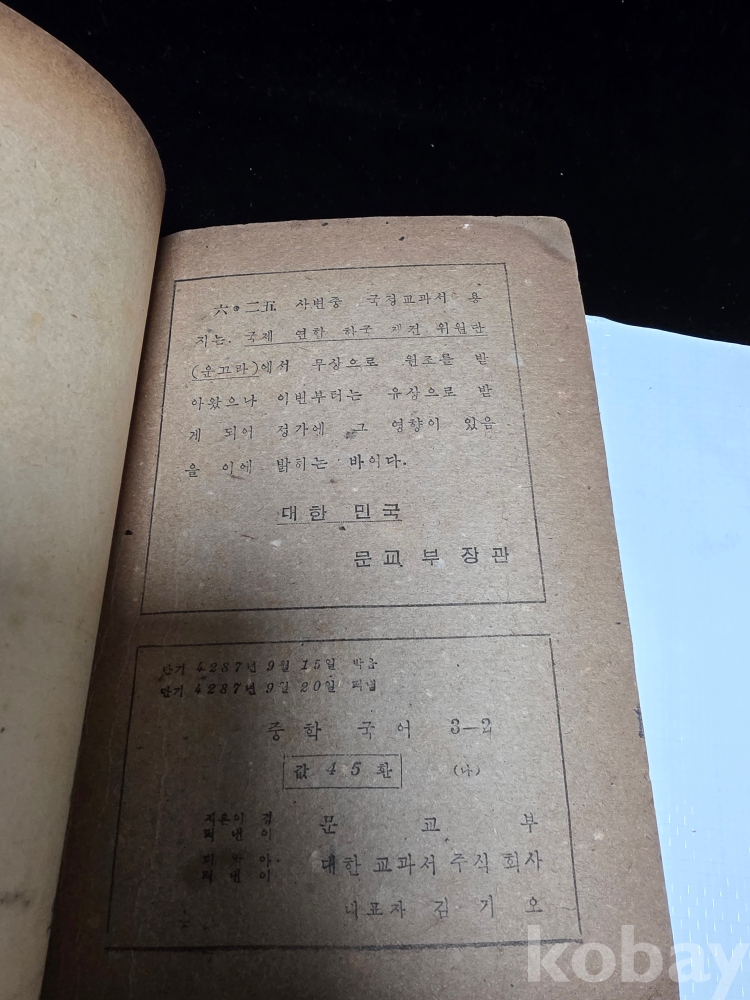 六•二五 사변중 국정교과서 용
지는. 국제 연합 한국 재건 위원단
(운끄라)에서 무상으로 원조를 받
아왔으나 이번부터는 유상으로 받
게 되어 정가에 그 영향이 있음
을 이에 밝히는 바이다.
대한 민국
문교부장관
단기 4287년 9월 15일 박음
단기 4287년 9월 20일 펴냄
중학 국어 3—2
값 45환 (나)
지은이 겸
펴낸이 문교부
펴낸이 대한 교과서 주식 회사
대표자 김기오
kobay